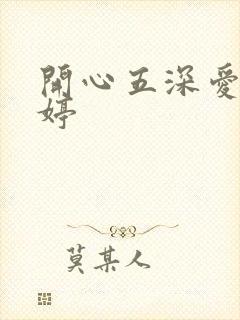 開心五深愛
婷
莫某人